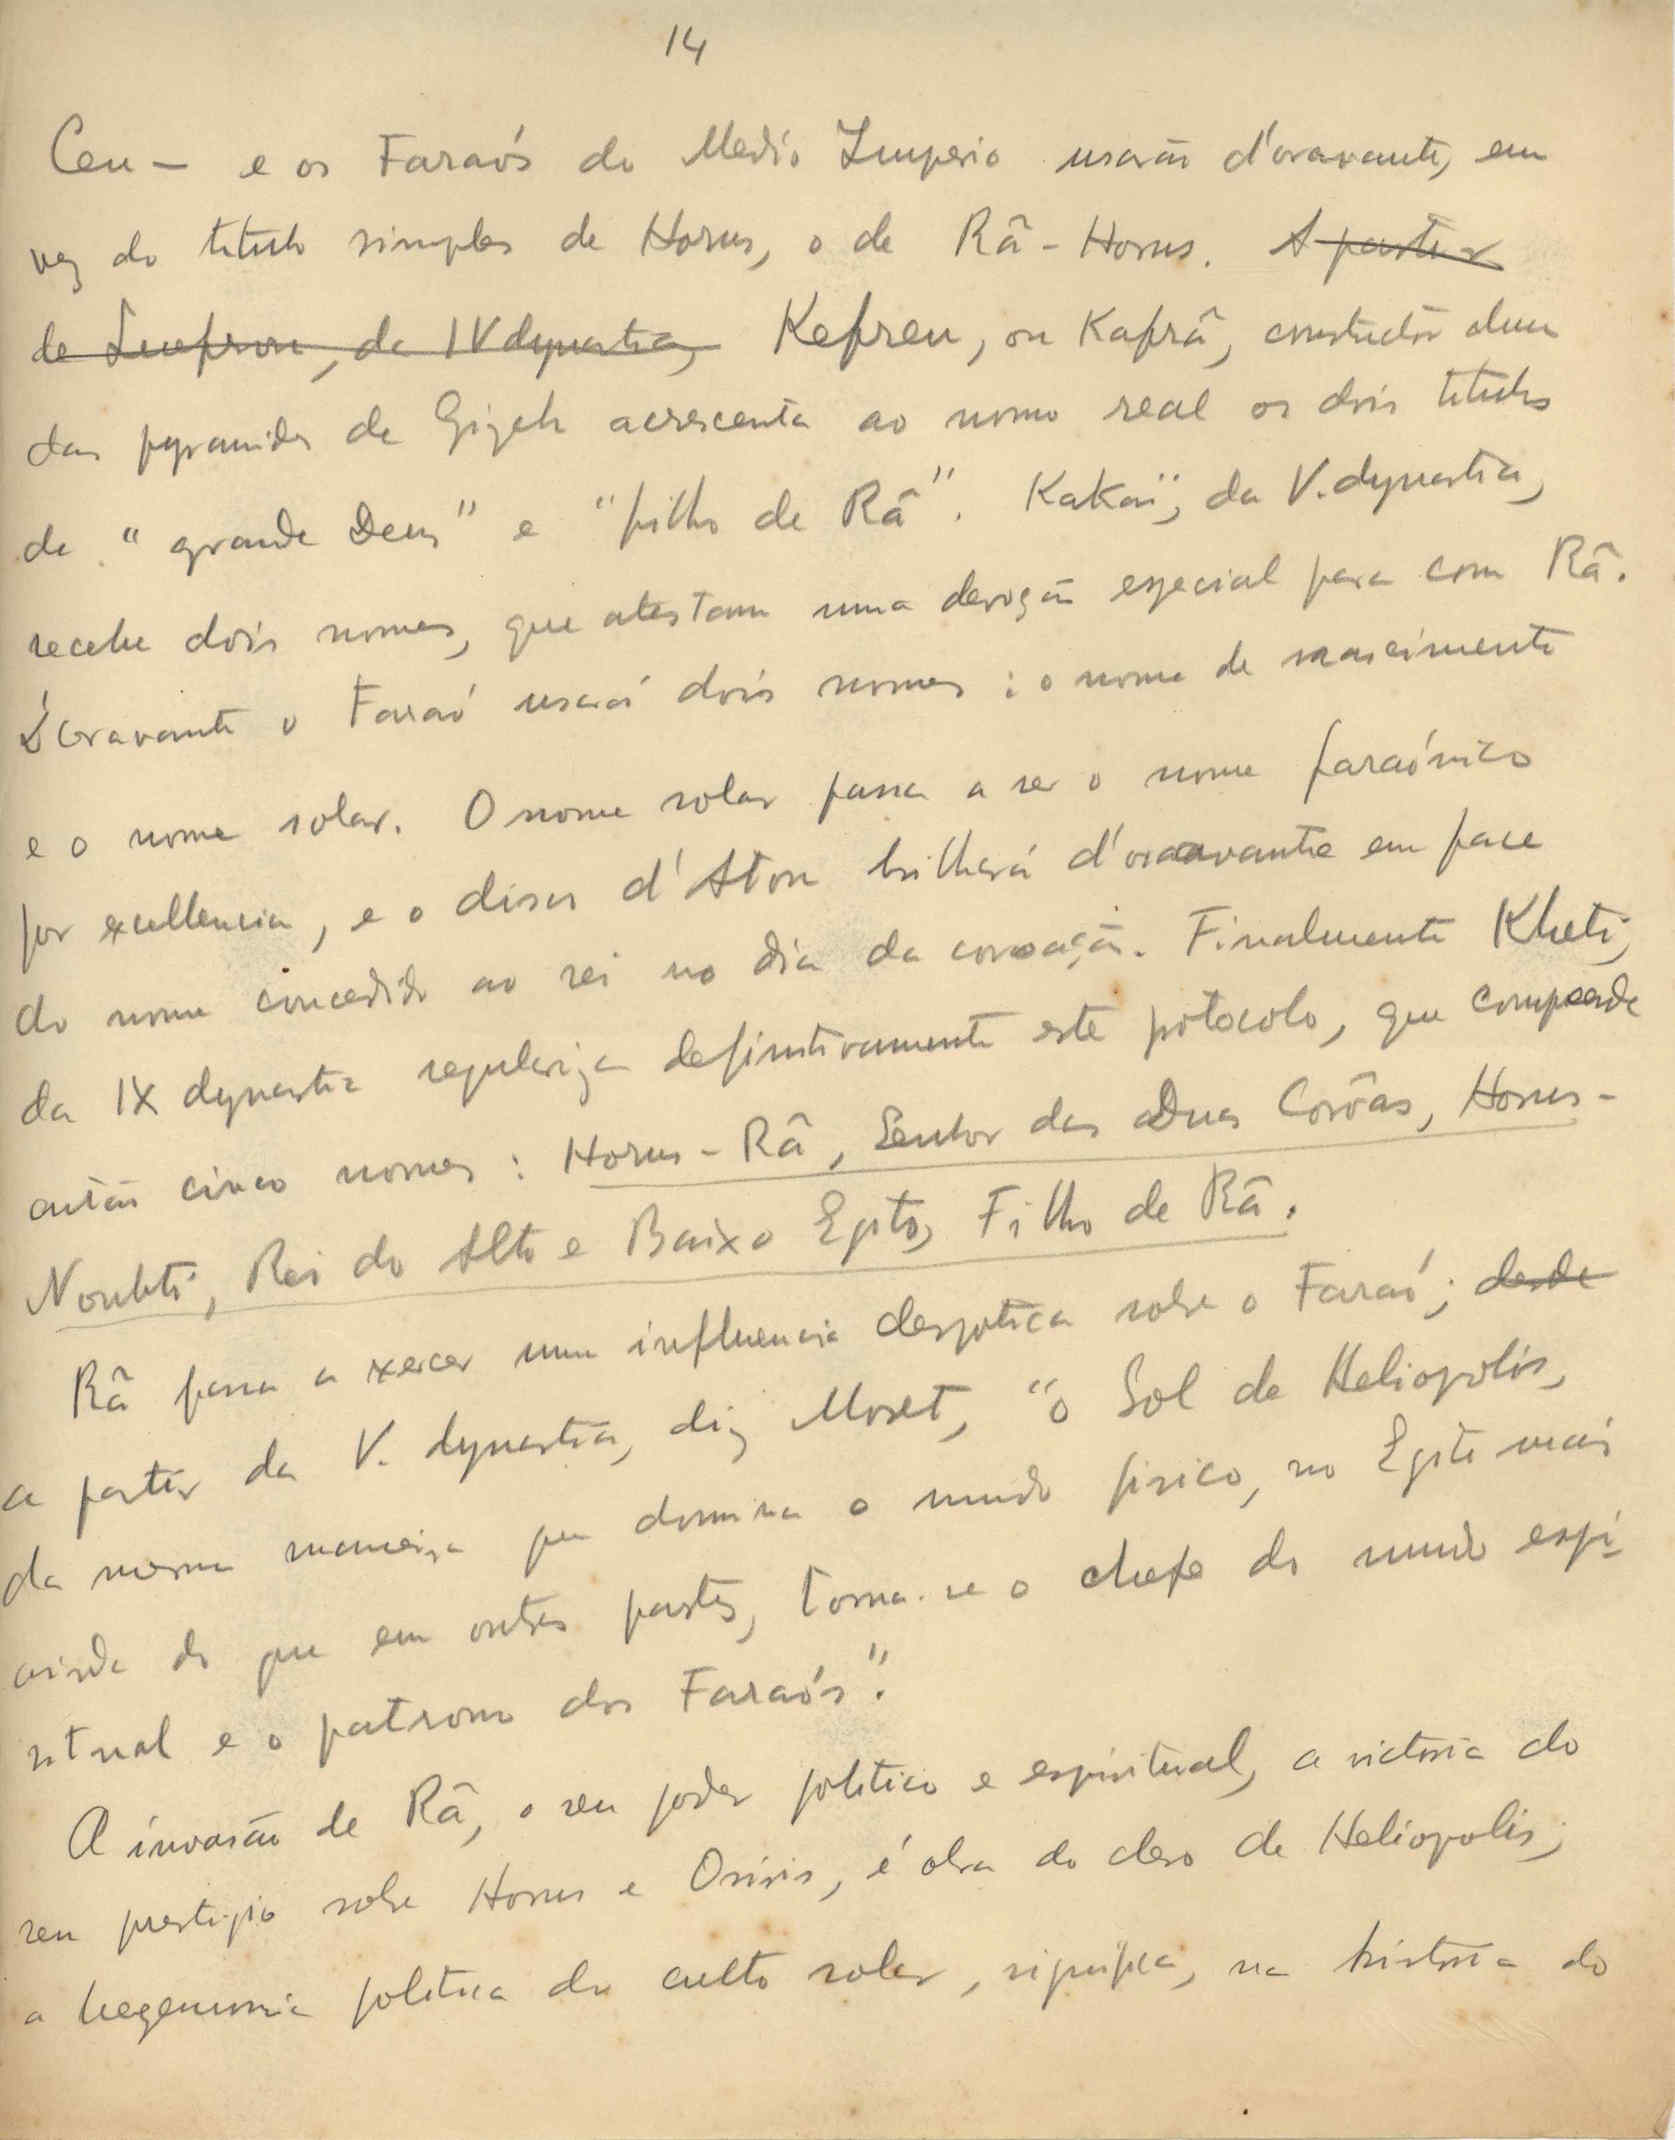 14
Ceu — e os Faraós do Medio Imperio usarão d'oravante, em
vez do titulo simples de Horus, o de Râ-Horus. A partir
de , da IV dynastia, Kefren, ou Kafrâ, constructor duma
das pyramides de Gizeh acrescenta ao nome real os dois titulos
de "grande Deus" e "filho de Râ". Kakaï, da V. dynastia,
recebe dois nomes, que atestam uma devoção especial para com Râ.
D'oravante o Faraó usará dois nomes: o nome de nascimento
e o nome solar. O nome solar passa a ser o nome faraónico
por excellencia, e o disco d'Aton brilhará d'oravante em face
do nome concedido ao rei no dia da coroação. Finalmente Kheti,
da IX dynastia regulariza definitivamente este protocolo, que comprende
então cinco nomes: Horus-Râ, Senhor das Duas Corôas, Horus-
Noubti, Rei do Alto e Baixo Egito, Filho de Râ.
Râ passa a exercer uma influencia despotica sobre o Faraó; desde
a partir da V. dynastia, diz Moret, "o Sol de Heliopolis,
da mesma maneira que domina o mundo fisico, no Egito mais
ainda do que em outras partes, torna-se o chefe do mundo espi-
ritual e o patrono dos Faraós".
A invasão de Râ, o seu poder politico e espiritual, a victoria do
seu prestigio sobre Horus e Osiris, é obra do clero de Heliopolis;
a hegemonia politica do culto solar, significa, na historia do